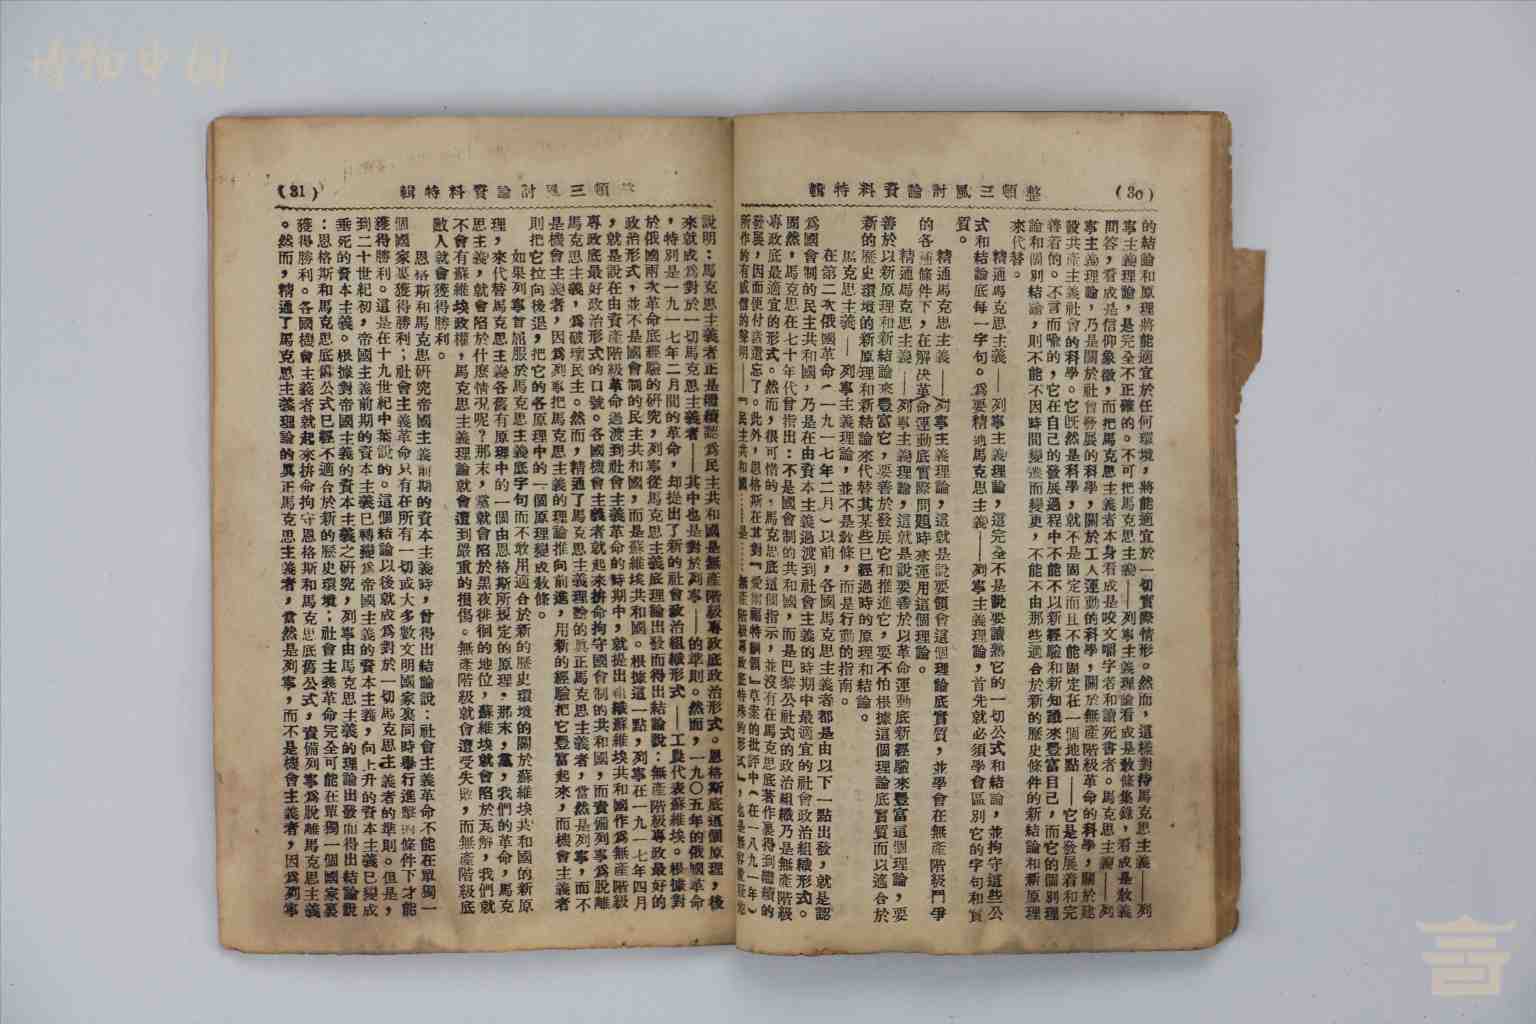 (30)
整頓三風討論資料特輯
的結論和原理將能適宜於任何環境，將能適宜於一切實際情形。然而，這樣對待馬克思主義——列
寧主義理論，是完全不正確的。不可把馬克思主義——列寧主義理論看成是教條集錄，看成是教義
問答，看成是信仰象徵，而把馬克思主義者本身看成是咬文嚼字者和讀死書者。馬克思主義——列
寧主義理論，乃是關於社會發展的科學，關於工人運動的科學，關於無產階級革命的科學，關於建
設共產主義社會的科學。它既然是科學，就不是固定而且不能固定在一個地點——它是發展着和完
善着的。不言而喻的，它在自己的發展過程中不能不以新經驗和新知識來豐富自己，而它的個別理
論和個別結論，則不能不因時間變遷而變更，不能不由那些適合於新的歷史條件的新結論和新原理
來代替。
精通馬克思主義——列寧主義理論，這完全不是說要讀熟它的一切公式和結論，並拘守這些公
式和結論底每一字句。爲要精通馬克思主義——列寧主義理論，首先就必須學會區別它的字句和實
質。
精通馬克思主義——列寧主義理論，這就是說要領會這個理論底實質，並學會在無產階級鬥爭
的各種條件下，在解決革命運動底實際問題時來運用這個理論。
精通馬克思主義——列寧主義理論，這就是說要善於以革命運動底新經驗來豐富這個理論，要
善於以新原理和新結論來豐富它，要善於發展它和推進它，要不怕根據這個理論底實質而以適合於
新的歷史環境的新原理和新結論來代替其某些已經過時的原理和結論。
馬克思主義——列寧主義理論，並不是教條，而是行動的指南。
在第二次俄國革命（一九一七年二月）以前，各國馬克思主義者都是由以下一點出發，就是認
爲國會制的民主共和國，乃是在由資本主義過渡到社會主義的時期中最適宜的社會政治組織形式。
固然，馬克思在七十年代曾指出：不是國會制的共和國，而是巴黎公社式的政治組織乃是無產階級
專政底最適宜的形式。然而，很可惜的，馬克思底這個指示，並沒有在馬克思底著作裏得到繼續的
發展，因而便付諸遺忘了。此外，恩格斯在其對『愛爾福特綱領』草案的批評中（在一八九一年）
所作的有威信的聲明——『民主共和國……是……無產階級專政底特殊的形式』，
(31)
整頓三風討論資料特輯
說明：馬克思主義者正是繼續認爲民主共和國是無產階級專政底政治形式。恩格斯底這個原理，後
來就成爲對於一切馬克思主義者——其中也是對於列寧——的準則。然而，一九〇五年的俄國革命
，特別是一九一七年二月間的革命，却提出了新的社會政治組織形式——工農代表蘇維埃。根據對
於俄國兩次革命底經驗的研究，列寧從馬克思主義底理論出發而得出結論說：無產階級專政最好的
政治形式，並不是國會制的民主共和國，而是蘇維埃共和國。根據這一點，列寧在一九一七年四月
，就是說在由資產階級革命過渡到社會主義革命的時期中，就提出組織蘇維埃共和國作爲無產階級
專政底最好政治形式的口號。各國機會主義者就起來拚命拘守國會制的共和國，而責備列寧爲脫離
馬克思主義，爲破壞民主。然而，精通了馬克思主義理論的真正馬克思主義者，當然是列寧，而不
是機會主義者，因爲列寧把馬克思主義的理論推向前進，用新的經驗把它豐富起來，而機會主義者
則把它拉向後退，把它的各原理中的一個原理變成教條。
如果列寧首屈服於馬克思主義底字句而不敢用適合於新的歷史環境的關於蘇維埃共和國的新原
理，來代替馬克思主義各舊有原理中的一個由恩格斯所規定的原理，那末，黨，我們的革命，馬克
思主義，就會陷於什麼情况呢？那末，黨就會陷於黑夜徘徊的地位，蘇維埃就會陷於瓦解，我們就
不會有蘇維埃政權，馬克思主義理論就會遭到嚴重的損傷。無產階級就會遭受失敗，而無產階級底
敵人就會獲得勝利。
恩格斯和馬克思研究帝國主義前期的資本主義時，曾得出結論說：社會主義革命不能在單獨一
個國家裏獲得勝利；社會主義革命只有在所有一切或大多數文明國家裏同時舉行進擊的條件下才能
獲得勝利。這是在十九世紀中葉說的。這個結論以後就成爲對於一切馬克思主義者的準則。但是，
到二十世紀初，帝國主義前期的資本主義已轉變爲帝國主義的資本主義，向上升的資本主義已變成
垂死的資本主義。根據對帝國主義的資本主義之研究，列寧由馬克思主義的理論出發而得出結論說
：恩格斯和馬克思底舊公式已經不適合於新的歷史環境；社會主義革命完全可能在單獨一個國家裏
獲得勝利。各國機會主義者就起來拚命拘守恩格斯和馬克思底舊公式，責備列寧爲脫離馬克思主義
。然而，精通了馬克思主義理論的真正馬克思主義者，當然是列寧，而不是機會主義者，因爲列寧